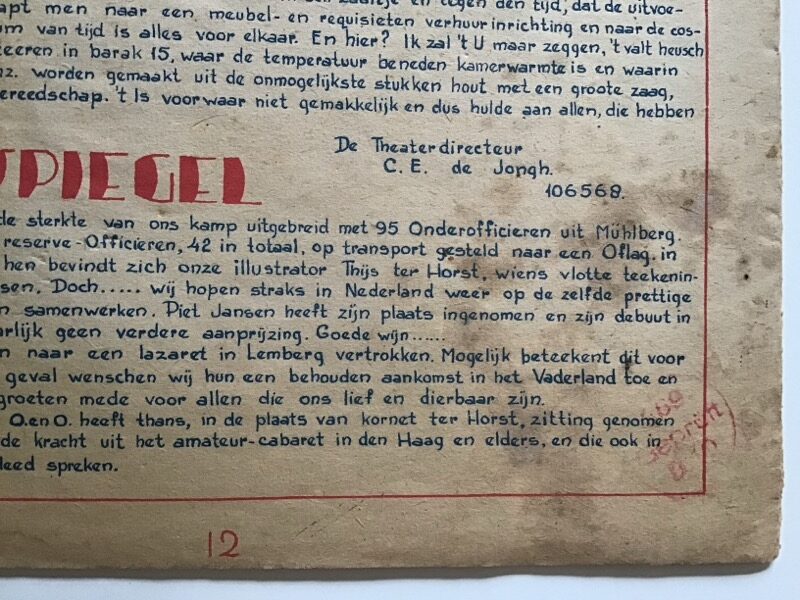 zaaltje en tegen den tijd, dat de uitvoe-
apt men naar een meubel- en requisieten verhuurinrichting en naar de cos-
m van tijd is alles voor elkaar. En hier? Ik zal 't U maar zeggen, 't valt heusch
teeren in barak 15, waar de temperatuur beneden kamerwarmte is en waarin
nz. worden gemaakt uit de onmogelijkste stukken hout met een groote zaag,
ereedschap. 't Is voorwaar niet gemakkelijk en dus hulde aan allen, die hebben
De Theaterdirecteur
C. E. de Jongh.
106568.
SPIEGEL
de sterkte van ons kamp uitgebreid met 95 Onderofficieren uit Mühlberg.
reserve-Officieren, 42 in totaal, op transport gesteld naar een Oflag. in
hen bevindt zich onze illustrator Thijs ter Horst, wiens vlotte teekenin-
sen. Doch..... wij hopen straks in Nederland weer op de zelfde prettige
n samenwerken. Piet Jansen heeft zijn plaats ingenomen en zijn debuut in
arlijk geen verdere aanprijzing. Goede wijn......
n naar een lazaret in Lemberg vertrokken. Mogelijk beteekent dit voor
geval wenschen wij hun een behouden aankomst in het Vaderland toe en
groeten mede voor allen die ons lief en dierbaar zijn.
O. en O. heeft thans, in de plaats van kornet ter Horst, zitting genomen
de kracht uit het amateur-cabaret in den Haag en elders, en die ook in
leed spreken.
Geprüft
12